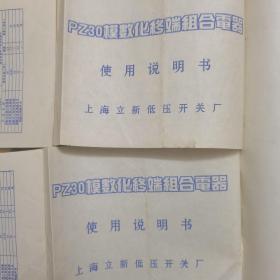 PZ30模数化终端组合電器
使用说明书
上海立新低压开关厂
PZ30模数化终端组合電器
使用说明书
上海立新低压开关厂